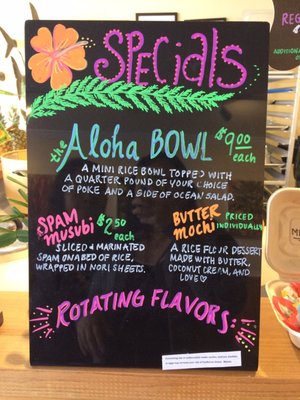 Specials
the Aloha BOWL $9.00 each
A MINI RICE BOWL TOPPED WITH
A QUARTER POUND OF YOUR CHOICE
OF POKE AND A SIDE OF OCEAN SALAD.
SPAM musubi $2.50 each
SLICED & MARINATED
SPAM ON A BED OF RICE,
WRAPPED IN NORI SHEETS.
BUTTER mochi PRICED INDIVIDUALLY
A RICE FLOUR DESSERT
MADE WITH BUTTER,
COCONUT CREAM, AND
LOVE ♡
ROTATING FLAVORS
REG
ADDITIONA